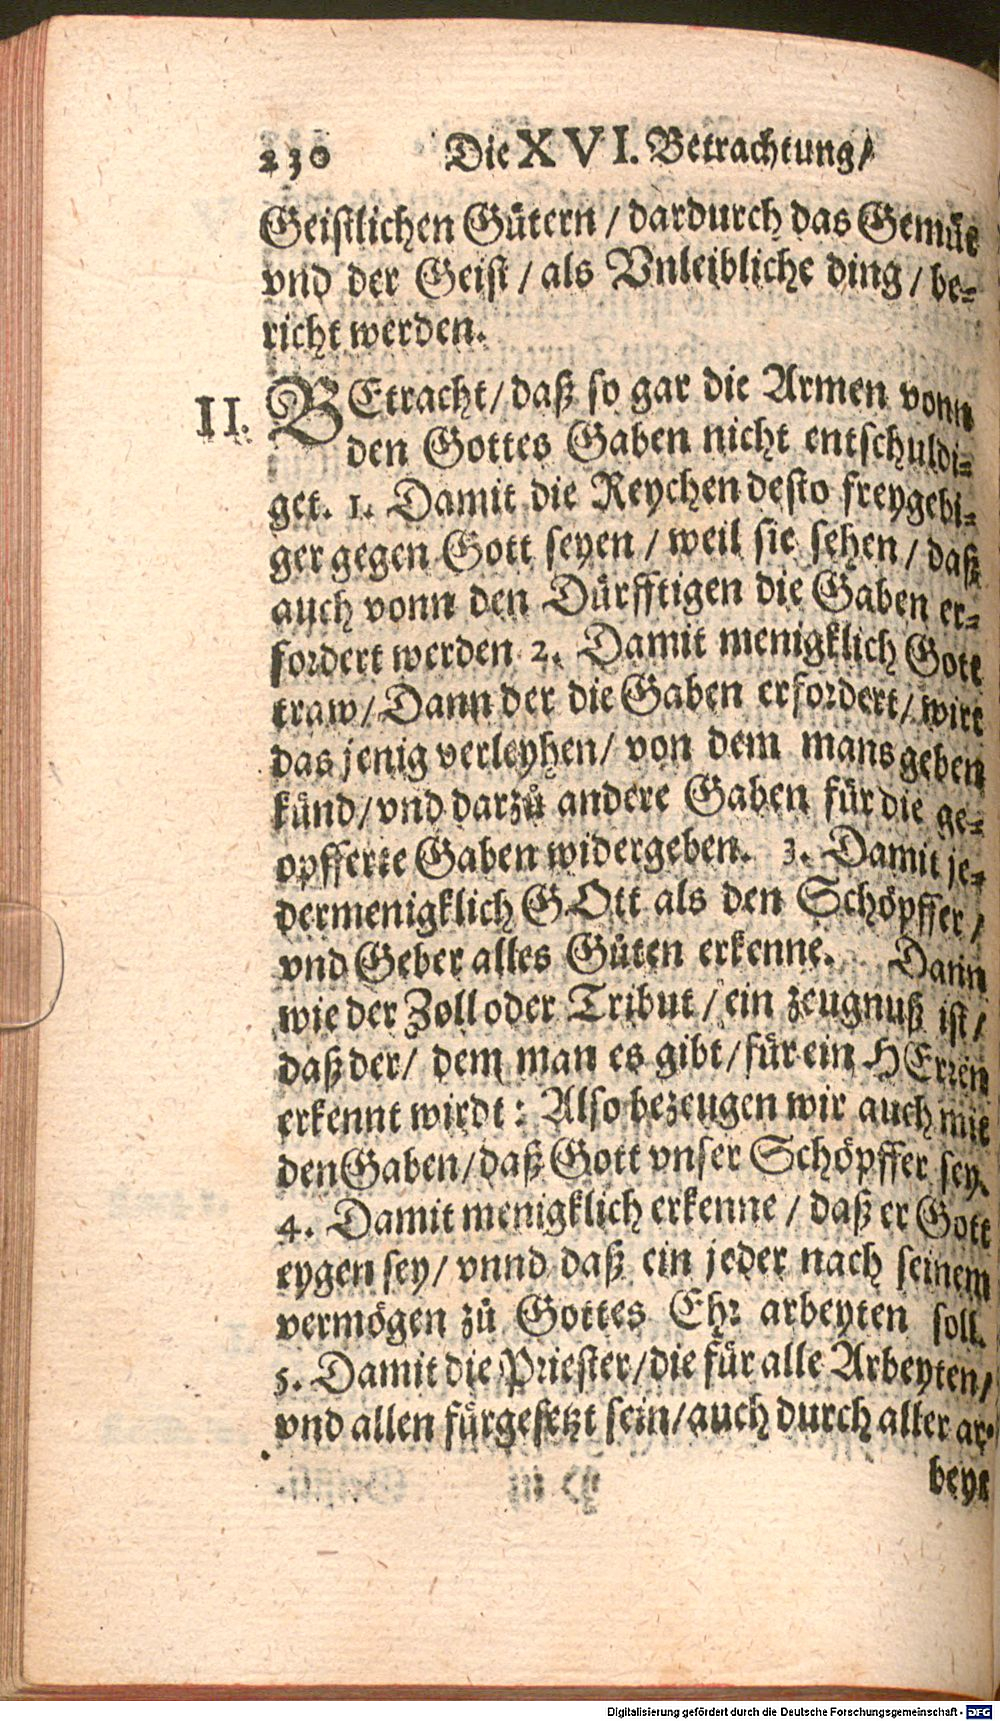 230 Die XVI. Betrachtung/
Geistlichen Gütern / dardurch das Gemüt
vnd der Geist / als Vnleibliche ding / be-
richt werden.
II. BEtracht / daß so gar die Armen vonn
den Gottes Gaben nicht entschuldi-
get. 1. Damit die Reychen desto freygebi-
ger gegen Gott seyen / weil sie sehen / daß
auch vonn den Dürfftigen die Gaben er-
fordert werden 2. Damit menigklich Gott
traw / Dann der die Gaben erfordert / wirt
das jenig verleyhen / von dem mans geben
künd / vnd darzů andere Gaben für die ge-
opfferte Gaben widergeben. 3. Damit je-
dermenigklich GOtt als den Schöpffer /
vnd Geber alles Güten erkenne. Dann
wie der Zoll oder Tribut / ein zeugnuß ist /
daß der / dem man es gibt / für ein HErren
erkennt wirdt : Also bezeugen wir auch mit
den Gaben / daß Gott vnser Schöpffer sey.
4. Damit menigklich erkenne / daß er Gott
eygen sey / vnnd daß ein jeder nach seinem
vermögen zů Gottes Ehr arbeyten soll.
5. Damit die Priester / die für alle Arbeyten /
vnd allen fürgesetzt sein / auch durch aller ar-
beyt
Digitalisierung gefördert durch die Deutsche Forschungsgemeinschaft - DFG